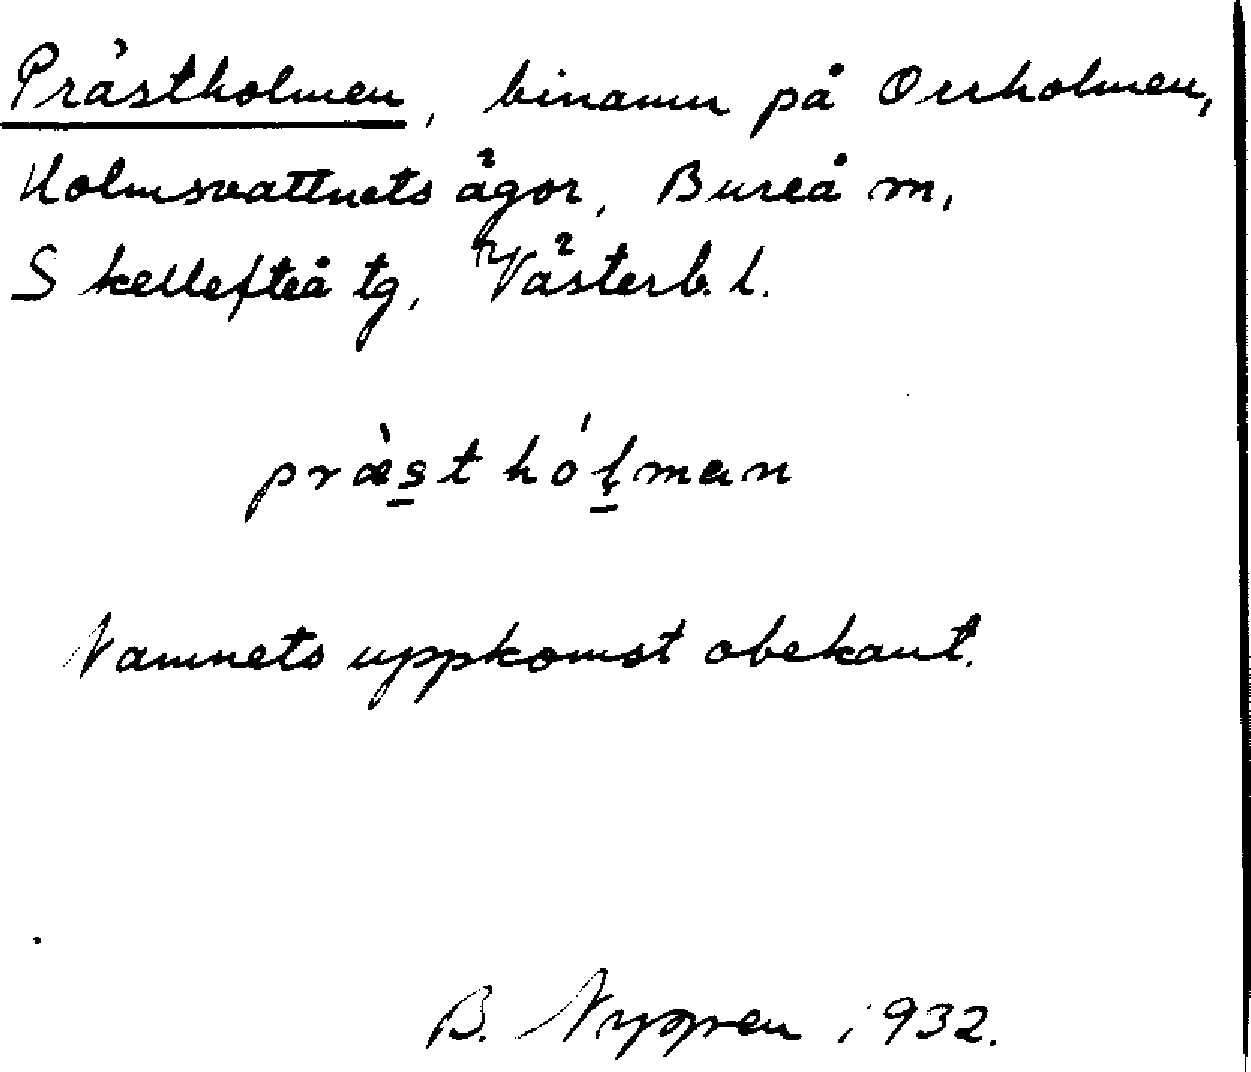 Prästholmen, binamn på Orrholmen,
Holmsvattnets ägor, Bureå m,
Skellefteå tg, Västerb. l.
præ̀st hó̱ļmɐn
Namnets uppkomst obekant.
B. Nyppen 1932.